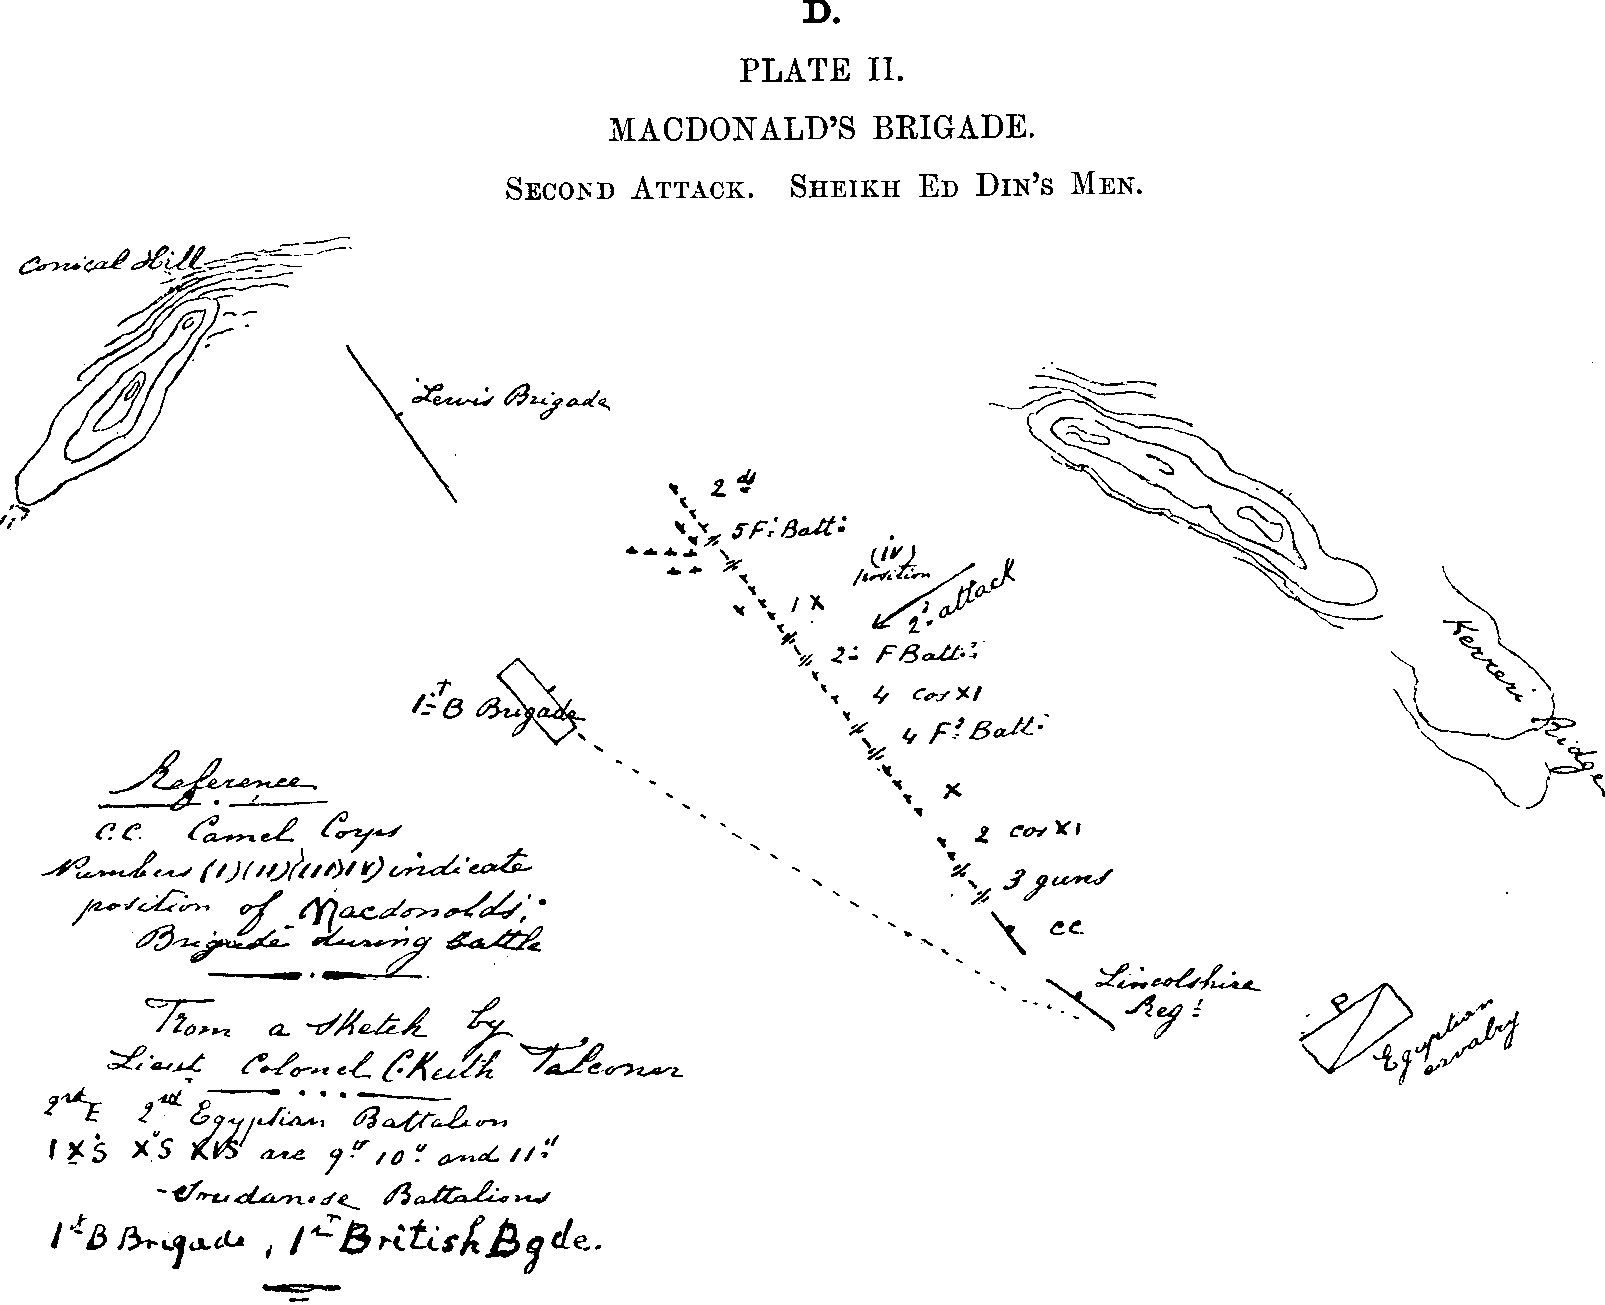 D.
PLATE II.
MACDONALD'S BRIGADE.
SECOND ATTACK. SHEIKH ED DIN'S MEN.
Conical Hill
Lewis Brigade
2nd
5 Fd. Batt:
(iv)
position
1 X
2d. attack
2d. F Batt:
4 cos XI
4 Fd. Batt:
Kerreri Ridge
1st B Brigade
X
2 cos XI
3 guns
CC
Lincolshire
Regt:
Egyptian
cavalry
Reference
C.C. Camel Corps
Numbers (I) (II) (III) (IV) indicate
position of Macdonolds
Brigade during battle
From a sketch by
Lieut Colonel C. Keith Falconer
2nd E 2nd Egyptian Battalion
IXS XS XIS are 9th 10th and 11th
Soudanese Battalions
1st B Brigade, 1st British Bgde.